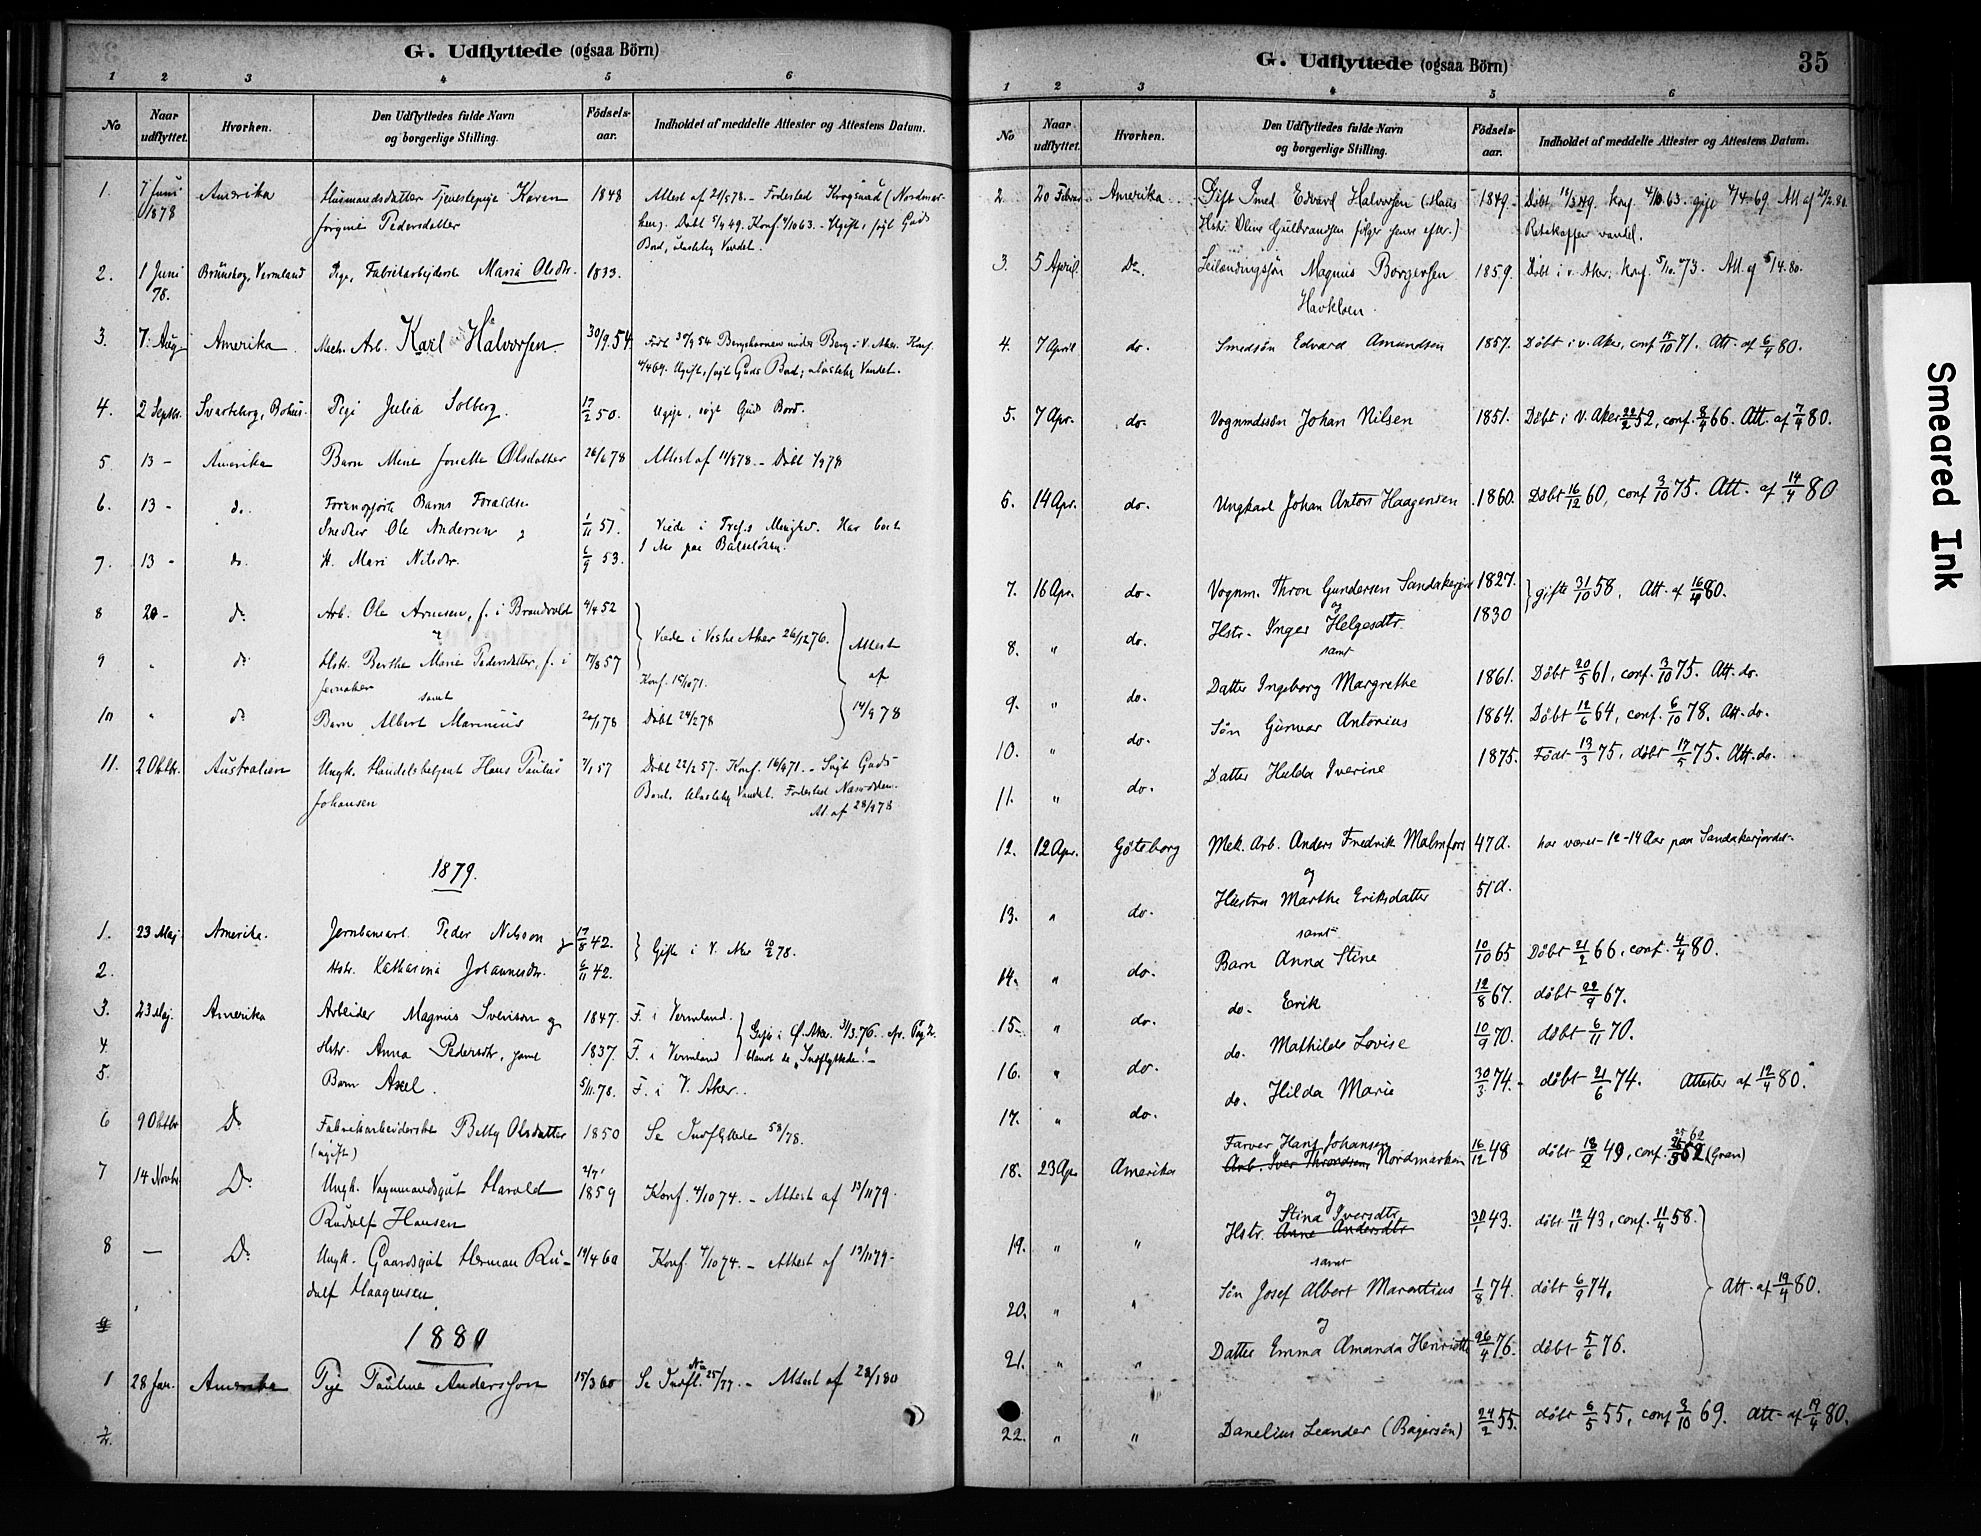 G. Udflyttede (ogsaa Börn)
1 2 3 4 5 6
No
Naar udflyttet.
Hvorhen.
Den Udflyttedes fulde Navn og borgerlige Stilling.
Födsels-aar.
Indholdet af meddelte Attester og Attestens Datum.
1. 7 Juni 1878 Amerika Husmandsdatter Tjenestepige Karen 1848 Attest af 21/5 78. - Fødested Krogsund (Nordmar-
Jørgine Pedersdatter ken). Døbt 49. Konf. 4/10 63. - Ugift, søgt Guds
Bord, ulastelig Vandel.
2. 1 Juni 78. Brunskog, Vermland Pige, Fabrikarbejderske Maria Olsdr. 1833.
3. 7. Aug. Amerika Mech. Arb. Karl Halvorsen. 30/9. 54 Født 30/9 54 under Berg i V. Aker. Konf.
4/4 69. Ugift, søgt Guds Bord; ulastelig Vandel.
4. 2 Septbr. Svarteborg, Bohus. Pige Julia Solberg. 17/2 50. Ugift, søgt Guds Bord.
5 13 - Amerika Barn Mine Jonette Olsdatter 26/6 78 Attest af 11/9 78 - Døbt 1/9 78
6. 13 - do. Foranopførte Barns Forældre
Snedker Ole Andersen og 1/11 57. Viede i Trefs Menighed. Har boet
7. 13 - do. H. Mari Nilsdr. 6/9 53. 1 Aar paa Balseløkken.
8 20 - do. Arb. Ole Arnesen, f. i Brandvold 4/4 52
og Viede i Vestre Aker 26/12 76. Attest
9 " do. Hstr. Berthe Marie Pedersdatter, f. i 17/8 57
Jevnaker Konf. 15/10 71. af
samt
10 " do. Barn Albert Marinius 20/1 78 Døbt 24/2 78 14/9 78
11. 2 Oktbr. Australien Ungk. Handelsbetjent Hans Paulus 7/1 57 Døbt 22/2 57. Konf. 16/4 71. - Søgt Guds
Johansen Bord. Ulastelig Vandel. Fødested
At. af 28/9 78
1879.
1. 23 Maj Amerika. Jernbanearb. Peder Nilsson og 17/8 42. Gifte i V. Aker 10/2 78.
2. Hstr. Katharina Johannesdr. 6/11 42.
3. 23 Maj. Amerika Arbeider Magnus Svenson og 1847. F. i Vermland. Gifte i Ø. Aker. 3/3. 76. Nr. Pag 2.
4. Hstr. Anna Pedersdtr, samt 1837. F. i Vermland blandt de "Indflyttede." -
5. Barn Axel. 5/11. 78. F. i V. Aker.
6 9 Oktbr Do Fabrikarbeiderske Betty Olsdatter 1850 Se Indflyttede 58/78.
(ugift) 2/7
7 14 Novbr Do. Ungk. Vognmandsgut Harald 1859 Konf. 4/10 74. - Attest af 13/11 79.
Rudolf Hansen
8 - Do. Ungk. Gaardsgut Herman Ru- 19/4 60 Konf. 4/10 74. - Attest af 13/11 79 -
dolf Haagensen
9
1880
1 28 Jan. Amerika Pige Pauline Andersson 15/3 60 Se Indfl. No 25/77. - Attest af 28/1 80
2.
G. Udflyttede (ogsaa Börn)
35
1 2 3 4 5 6
No
Naar udflyttet.
Hvorhen.
Den Udflyttedes fulde Navn og borgerlige Stilling.
Födsels-aar.
Indholdet af meddelte Attester og Attestens Datum.
2. 20 Febr. Amerika Gift Smed Edvard Halvorsen (Hans 1849. Døbt 18/3 49. Konf. 4/10 63. gift 4/4 69. Att. af 20/2. 80.
Hstr. Oline Gulbrandsen følger senere efter.) Retskaffen vandel.
3. 5 April. Do. Leilændingssøn Magnus Borgersen 1859. Døbt i v. Aker; Konf. 5/10. 73. Att. af 5/4. 80.
4. 7 April do. Smedsøn Edvard Amundsen 1857. Døbt i v. Aker, conf. 15/10 71. Att. af 6/4 80.
5. 7 Apr. do. Vognmdssøn Johan Nilsen 1851. Døbt i v. Aker 22/2 52, conf. 8/4 66. Att. af 7/4 80.
6. 14 Apr. do. Ungkarl Johan Anton Haagensen 1860. Døbt 16/12 60, conf. 3/10 75. Att. af 14/4 80
7. 16 Apr. do. Vognm. Thron Gundersen Sandakerjord 1827. gifte 31/10 58. Att. af 16/4 80.
og
8. " do. Hstr. Inger Helgesdtr. 1830
samt
9. " do. Datter Ingeborg Margrethe 1861. Døbt 20/5 61, conf. 3/10 75. Att. do.
10. " do. Søn Gunvar Antonius 1864. Døbt 12/6 64, conf. 6/10 78. Att. do.
11. " do. Datter Hulda Iverine 1875. Født 13/3 75, døbt 17/5 75. Att. do.
12. 12 Apr. Göteborg Mek. Arb. Anders Fredrik Malmfors 47 A. har været 12-14 Aar paa Sandakerjordet.
og
13. " do. Hustru Marthe Eriksdatter 51 A.
samt
14. " do. Barn Anna Stine 10/10 65 Døbt 21/2 66, conf. 4/4 80.
15. " do. do. Erik 12/8 67. døbt 22/9 67.
16. " do. do. Mathilde Lovise 10/9 70. døbt 6/11 70.
17. " do. do. Hilda Marie 30/3 74. døbt 21/6 74. Attester af 12/4 80.
18. 23 Ap. Amerika Farver Hans Johansen
Arb. Iver Throndsen, Nordmarken 16/12 48 døbt 18/2 49, conf. 25 62 (Gran)
og
19. " " Stina Iversdtr.
Hstr. Anne Andersdtr 30/1 43. døbt 12/11 43, conf. 11/4 58.
samt
20. " " Søn Josef Albert Marentius 1/8 74. døbt 6/9 74. Att. af 19/4 80.
og
21. " " Datter Emma Amanda Henriette 26/4 76. døbt 5/6 76.
22. " " Danelius Leander (Bagersøn) 24/2 55. døbt 6/5 55, conf. 3/10 69. Att. af 19/4 80.
Smeared Ink